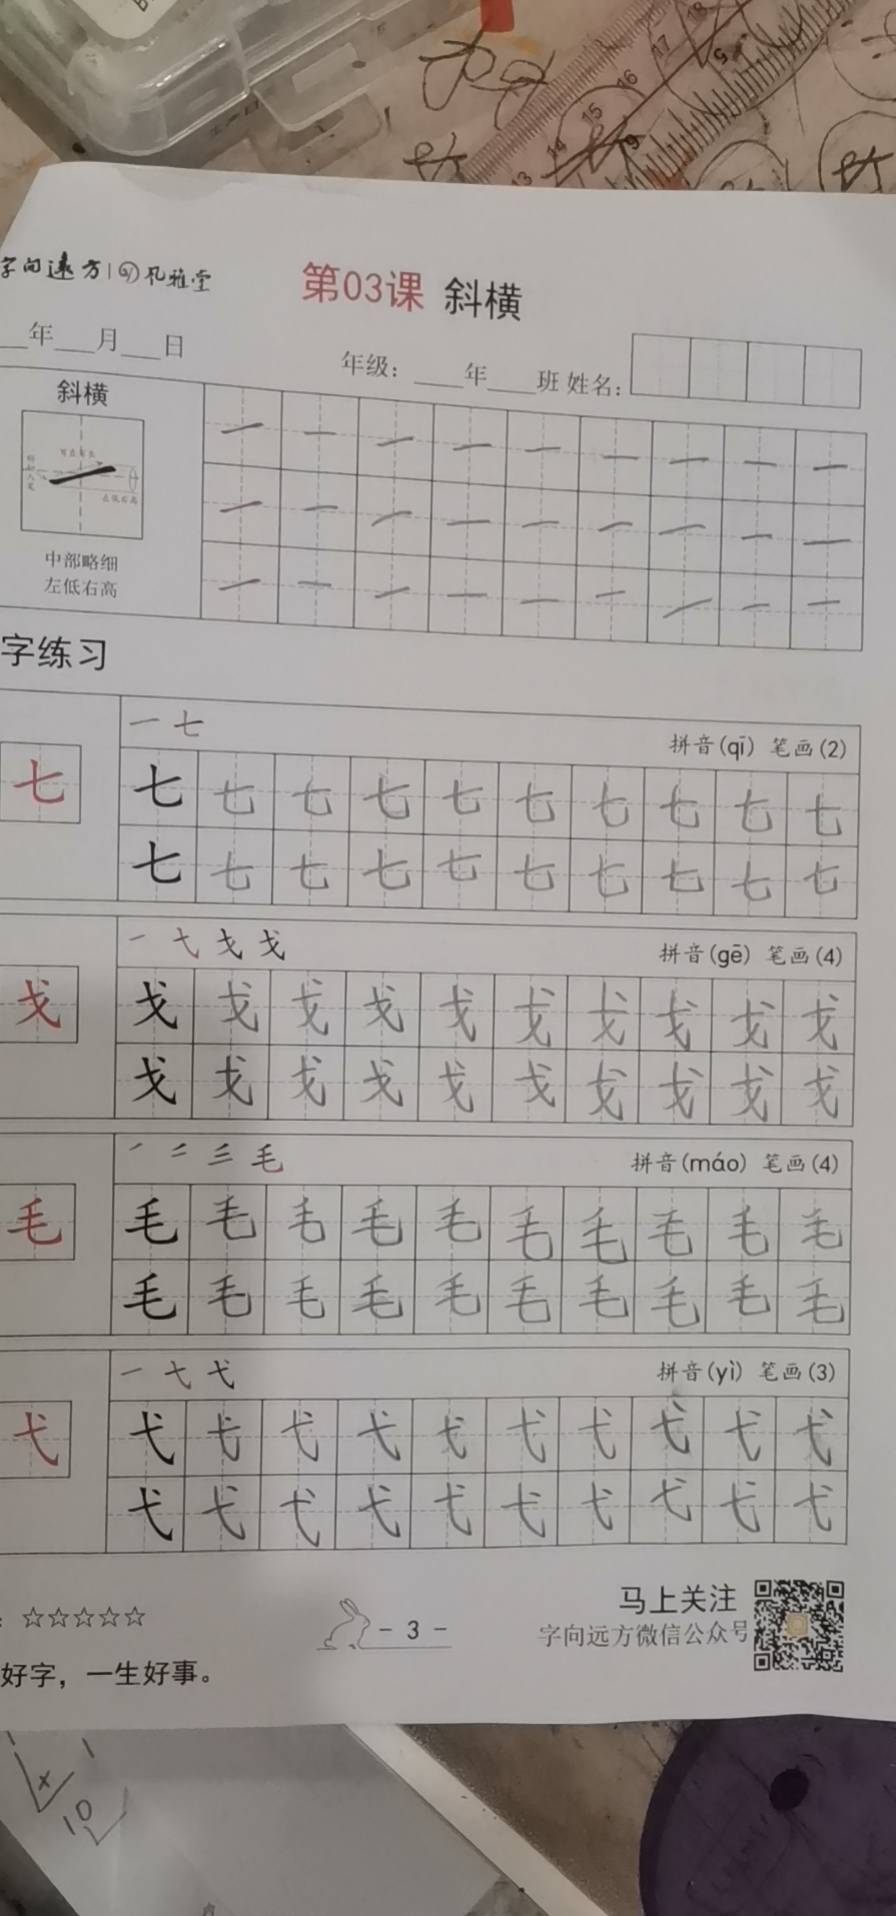 字向远方
第03课 斜横
__年__月__日
年级：__年__班 姓名：
斜横
中部略细
左低右高
字练习
一 七
拼音(qī) 笔画(2)
七 七 七 七 七 七 七 七 七 七 七
七 七 七 七 七 七 七 七 七 七
拼音(gē) 笔画(4)
戈 戈 戈 戈 戈 戈 戈 戈 戈 戈 戈
戈 戈 戈 戈 戈 戈 戈 戈 戈 戈
毛
拼音(máo) 笔画(4)
毛 毛 毛 毛 毛 毛 毛 毛 毛 毛 毛
毛 毛 毛 毛 毛 毛 毛 毛 毛 毛
一 弋
拼音(yì) 笔画(3)
弋 弋 弋 弋 弋 弋 弋 弋 弋 弋 弋
弋 弋 弋 弋 弋 弋 弋 弋 弋 弋
☆☆☆☆☆
- 3 -
马上关注
字向远方微信公众号
好字，一生好事。
10